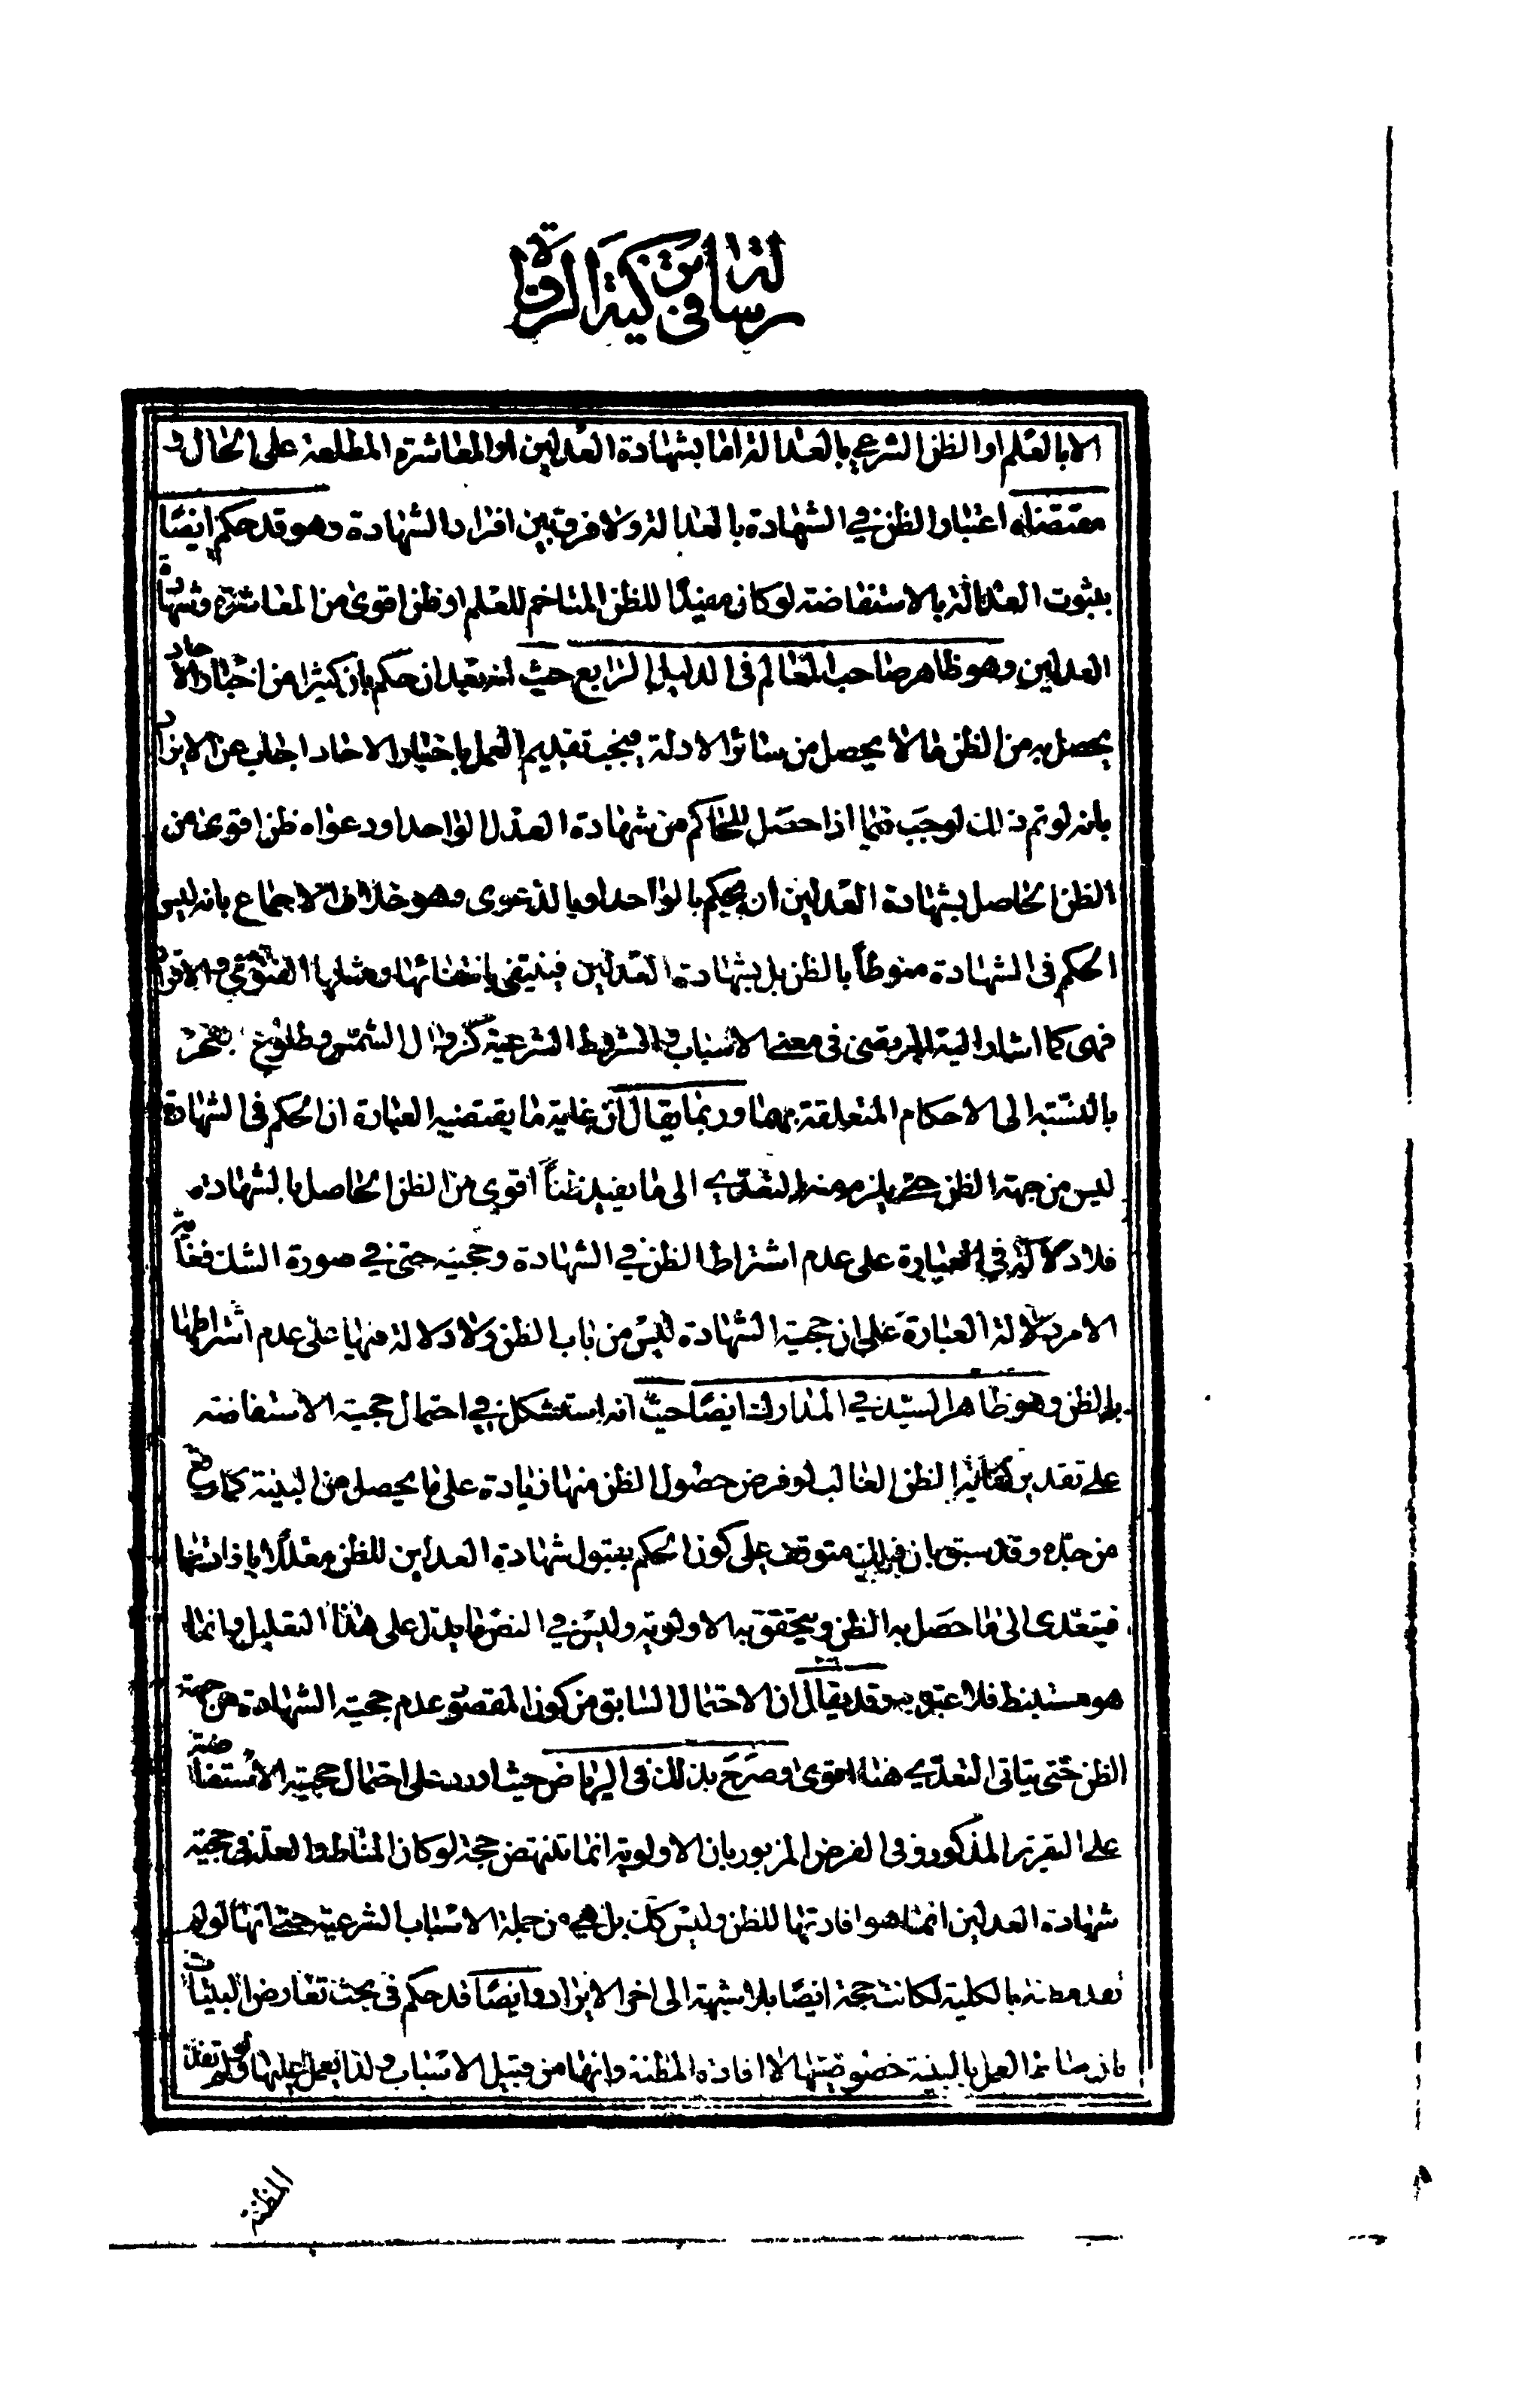 رسالة في تزكية الرواة
الا بالعلم او الظن الشرعي بالعدالة اما بشهادة العدلين او المعاشرة المطلعة على الحال و
مقتضاه اعتبار الظن في الشهادة بالعدالة ولا فرق بين افراد الشهادة وهو قد حكم ايضا
بثبوت العدالة بالاستفاضة لو كان مفيدا للظن المتاخم للعلم او ظن اقوى من المعاشرة وشهادة
العدلين وهو ظاهر صاحب المعالم في الدليل الرابع حيث انه بعد ان حكم بان كثيرا من اخبار الاحاد
يحصل به من الظن ما لا يحصل من سائر الادلة فيجب تقديم العمل باخبار الاحاد اجاب عن الايراد
بانه لو تم ذلك لوجب فيما اذا حصل للحاكم من شهادة العدل الواحد او دعواه ظن اقوى من
الظن الحاصل بشهادة العدلين ان يحكم بالواحد او بالدعوى وهو خلاف الاجماع بانه ليس
الحكم في الشهادة منوطا بالظن بل بشهادة العدلين فينتفي بانتفائها ومثلها الفتوى والاقرار
فهي كما اشار اليه المرتضى في معنى الاسباب والشروط الشرعية كزوال الشمس وطلوع الفجر
بالنسبة الى الاحكام المتعلقة بهما وربما يقال ان غاية ما يقتضيه العبارة ان الحكم في الشهادة
ليس من جهة الظن حتى يلزم منه التعدي الى ما يفيد ظنا اقوى من الظن الحاصل بالشهادة
فلا دلالة في العبارة على عدم اشتراط الظن في الشهادة وحجيته حتى في صورة الشك فغاية
الامر دلالة العبارة على ان حجية الشهادة ليس من باب الظن ولا دلالة فيها على عدم اشتراطها
بالظن وهو ظاهر السيد في المدارك ايضا حيث انه استشكل في احتمال حجية الاستفاضة
على تقدير الظن الغالب لو فرض حصول الظن منها زيادة على ما يحصل من البينة كما وقع
من جده وقد سبق بان متوقف على كون الحكم بقبول شهادة العدلين للظن معللا بافادتهما
فيتعدى الى ما حصل به الظن ويتحقق به الاولوية وليس في النص ما يدل على هذا التعليل وانما
هو مستنبط فلا عبرة به وقد يقال ان الاحتمال السابق من كون المقصود عدم حجية الشهادة من جهة
الظن حتى يتاتى التعدي هنا اقوى وصرح بذلك في الرياض حيث اورد على احتمال حجية الاستفاضة
على التقرير المذكور وفي الفرض المزبور بان الاولوية انما تنهض حجة لو كان المناط والعلة في حجية
شهادة العدلين انما هو افادتها للظن وليس كك بل هي من جملة الاسباب الشرعية حتى انها لو لم
تفد مظنة بالكلية لكانت حجة ايضا بلا شبهة الى اخر الايراد وايضا قد حكم في بحث تعارض البينات
بان العمل بالبينة خصوصيتها لا افادة المظنة وانها من قبيل الاسباب ولذا يعمل عليها ولو لم تفد
المظنة